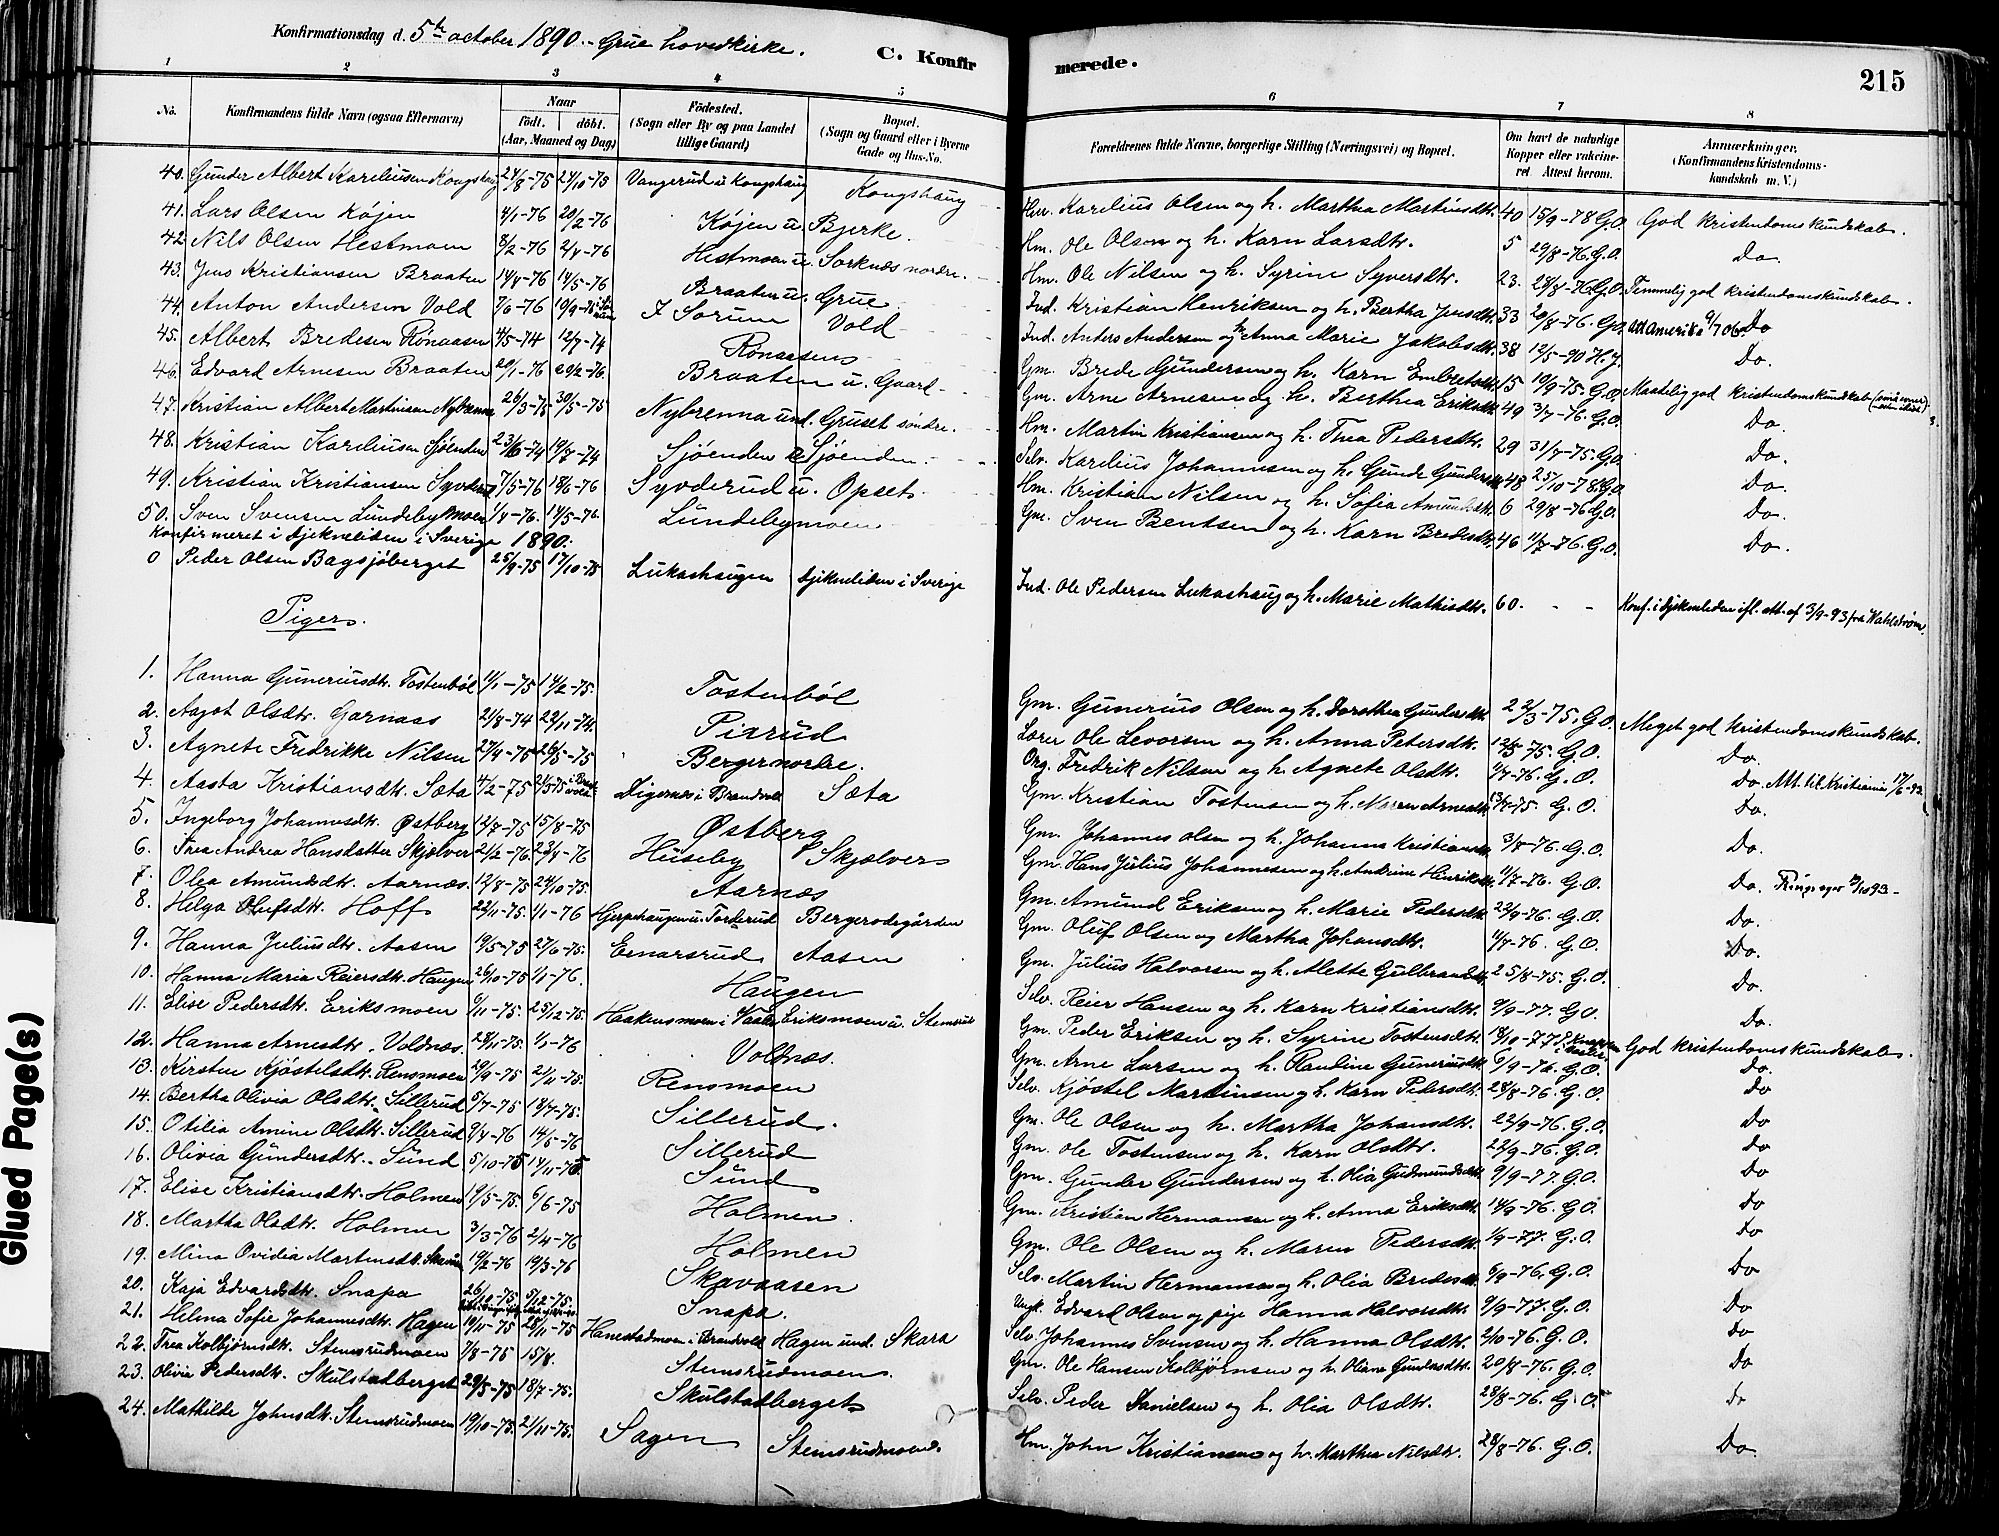 Konfirmationsdag d. 5te october 1890. - Grue hovedkirke.
C. Konfirmerede.
215
1 2 3 4 5 6 7 8
No. Konfirmandens fulde Navn (ogsaa Efternavn) Naar födt. döbt. (Aar, Maaned og Dag) Födested. (Sogn eller By og paa Landet tillige Gaard) Bopæl. (Sogn og Gaard eller i Byerne Gade og Hus-No. Forældrenes fulde Navne, borgerlige Stilling (Næringsvei) og Bopæl. Om havt de naturlige Kopper eller vakcineret Attest herom. Anmærkninger. (Konfirmandens Kristendomskundskab m. V.)
40. Gunder Albert Kareliusen Kongshaug 24/8-75 24/10-75 Vangerud u Kongshaug Kongshaug Karelius Olsen og h. Martha Martinsdtr. 40 15/9-78 G.O. God kristendomskundskab.
41. Lars Olsen Köjen 4/1-76 20/2-76 Köjen u. Bjerke. Hm. Ole Olsen og h. Karn Larsdtr. 5 29/8-76 G.O. Do.
42. Nils Olsen Hestmoen 8/2-76 2/4-76 Hestmoen u. Sorknæs nordre. Hm. Ole Nilsen og h. Syrine Syversdtr. 23. 28/8-76 G.O. Temmelig god kristendomskundskab.
43. Jens Kristiansen Braaten 14/4-76 14/5-76 Braaten u. Grue Ind. Kristian Henriksen og h. Bertha Jensdtr. 33 20/8-76. G.O. Do
44. Anton Andersen Vold 7/6-76 10/9-76 I Sorum Vold Ind. Anders Andersen og Anna Marie Jakobsdtr. 38 12/5-90 H.J. ad Amerika 9/7 06. Do.
45. Albert Bredesen Rönaasen 4/5-74 12/7-74 Rönaasen Gm. Brede Gundersen og h. Karn Embretsdtr. 15 10/9-75. G.O. Maadelig god kristendomskundskab
46. Edvard Arnesen Braaten 20/1-76 20/2-76. Braaten u. Gaard Gm. Arne Arnesen og h. Berthea Eriksdtr. 49 3/7-76. G.O. Do.
47. Kristian Albert Martinsen Nybrenna 26/3-75 30/5-75 Nybrenna und. Gruset söndre. Hm. Martin Kristiansen og h. Thea Pedersdtr. 29 31/7-75. G.O. Do.
48. Kristian Kareliusen Sjöenden 23/6-74 19/7-74 Sjöenden Sjöenden. Selv. Karelius Johannesen og h. Gunde Gundersdtr. 48 25/10-78 G.O. Do.
49. Kristian Kristiansen Syvderud 7/5-76 18/6-76 Syvderud u. Opset. Hm. Kristian Nilsen og h. Sofia Amundsdtr. 6 29/8-76 G.O. Do.
50. Sven Svensen Lundebymoen 1/4-76. 14/5-76. Lundebymoen Gm. Sven Bentsen og h. Karn Bredesdtr. 46 11/7-76. G.O. Do.
Konfirmeret i Djekneliden i Sverige 1890:
0 Peder Olsen Bagsjöberget 25/9-75 17/10-75 Lukashaugen djekneliden i Sverige Ind. Ole Pedersen Lukashaug og h. Marie Mathisdtr. 60. - - Konf. i djekneliden ifl. att. af 3/9-93 fra Wahlström.
Piger.
1. Hanna Guneriusdtr. Tostenböl 11/1-75 14/2-75. Tostenböl Gm. Gunerius Olsen og h. Dorothea Gundersdtr. 22/3-75. G.O. Meget god kristendomskundskab.
2. Aagot Olsdtr. Garnaas 21/8-74 29/11-74. Pirrud Lærer Ole Levorsen og h. Anna Petersdtr. 12/5-75. G.O. Do.
3. Agnete Fredrikke Nilsen 27/4-75 26/5-75 Berger nordre. Org. Fredrik Nilsen og h. Agnete Olsdtr. 1/7-76. G.O. Do. Att. til Kristiania 17/6-92.
4. Aasta Kristiansdtr. Sæta 4/2-75 21/3-75 Digernes i Brandvold Sæta Gm. Kristian Tostensen og h. Maren Arnesdtr. G.O. Do.
5. Ingeborg Johannesdtr. Østberg 12/7-75 15/8-75 Østberg Gm. Johannes Olsen og h. Johanna Kristiansdtr. 3/8-76. G.O. Do.
6. Trea Andrea Hansdatter Skjælver 21/2-76. 23/4-76 Huseby Skjælver Gm. Hans Julius Johannesen og h. Andrine Henriksdtr. 11/7-76. G.O. Do. Ringsager 93
7. Olea Amundsdtr. Aarnæs. 12/8-75 24/10-75. Aarnæs Gm. Amund Eriksen og h. Marie Pedersdtr. 22/9-76. G.O. Do.
8. Helga Olufsdtr. Hoff 22/11-75. 1/1-76 Hjerpehaugen u. Torderud Bergerødegården Gm. Oluf Olsen og Martha Johansdtr. 11/7-76. G.O. Do.
9. Hanna Juliusdtr. Aasen 19/5-75 27/6-75. Ernarsrud Aasen Gm. Julius Halvorsen og h. Alette Gulbrandsdtr. 25/8-75. G.O. Do.
10. Hanna Maria Reiersdtr. Haugen 26/10-75 1/1-76. Haugen Selv. Reier Hansen og h. Karn Kristiansdtr. 9/9-77. G.O. Do.
11. Elise Pedersdtr. Eriksmoen 6/11-75. 25/12-75. Haakensmoen i Vaaler Eriksmoen u. Stemsrud Gm. Peder Eriksen og h. Syrine Tostensdtr. 18/10-77 God kristendomskundskab.
12. Hanna Arnesdtr. Voldnæs. 28/11-75. 1/1-76 Voldnæs. Gm. Arne Larsen og h. Randine Guneriusdtr. 6/9-76. G.O. Do.
13. Kirsten Kjöstelsdtr. Rensmoen 20/9-75 21/11-75. Rensmoen Selv. Kjöstel Martinsen og h. Karn Pedersdtr. 28/8-76. G.O. Do
14. Bertha Olivia Olsdtr. Sillerud 5/7-75 18/7-75. Sillerud. Gm. Ole Olsen og h. Martha Johansdtr. 22/9-76. G.O. Do
15. Otilia Amine Olsdtr. Sillerud 9/4-76 14/5-76 Sillerud Gm. Ole Tostensen og h. Karn Olsdtr. 22/9-76. G.O. Do
16. Olivia Gundersdtr. Sund 5/10-75 14/11-75. Sund Gm. Gunder Gundersen og h. Olia Gudmundsdtr. 9/9-77. G.O. Do
17. Elise Kristiansdtr. Holmen 19/5-75. 6/6-75 Holmen. Gm. Kristian Hermansen og h. Anna Eriksdtr. 14/9-76. G.O. Do
18. Martha Olsdtr. Holmen 3/3-76 2/4-76 Holmen Gm. Ole Olsen og h. Maren Pedersdtr. 1/9-77. G.O. Do
19. Mina Ovidia Martinsdtr. Skavaasen 10/2-76 19/3-76 Skavaasen Selv. Martin Hermansen og h. Olia Bredesdtr. 6/9-76. G.O. Do
20. Kaja Edvardsdtr. Snapa 26/10-75 5/12-75. Snapa. Ungk. Edvard Olsen og pige Hanna Halvorsdtr. 9/9-77. G.O. Do
21. Helma Sofie Johannesdtr. Hagen 10/11-75 28/11-75 Hanestadmoen i Brandvold Hagen und. Skara Selv. Johannes Svensen og h. Hanna Olsdtr. 2/10-76. G.O. Do
22. Trea Kolbjörnsdtr. Stemsrudmoen 7/8-75 15/8. Stemsrudmoen. Gm. Ole Hansen Kolbjørnsen og h. Oliane Gundersdtr. 20/8-76. G.O. Do
23. Olivia Pedersdtr. Skulstadberget 29/5-75 18/7-75. Skulstadberget Selv. Peder Danielsen og h. Olia Olsdtr. 28/8-76. G.O. Do
24. Mathilde Johnsdtr. Stemsrudmoen 19/10-75. 21/11-75. Sagen Stemsrudmoen. Hm. John Kristiansen og h. Marthea Nilsdtr. 28/8-76. G.O. Do.
Glued Page(s)